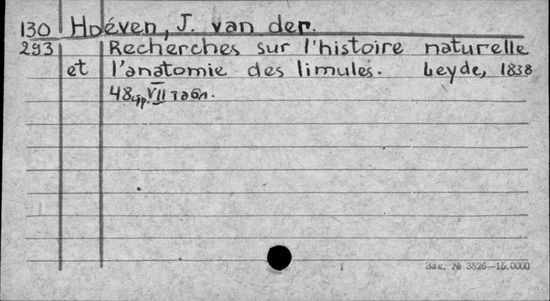 130 Hoéven, J. van der.
293 Recherches sur l'histoire naturelle
et l'anatomie des limules. Leyde, 1838
48 стр. VII табл.
Зак. № 3826—15.0000